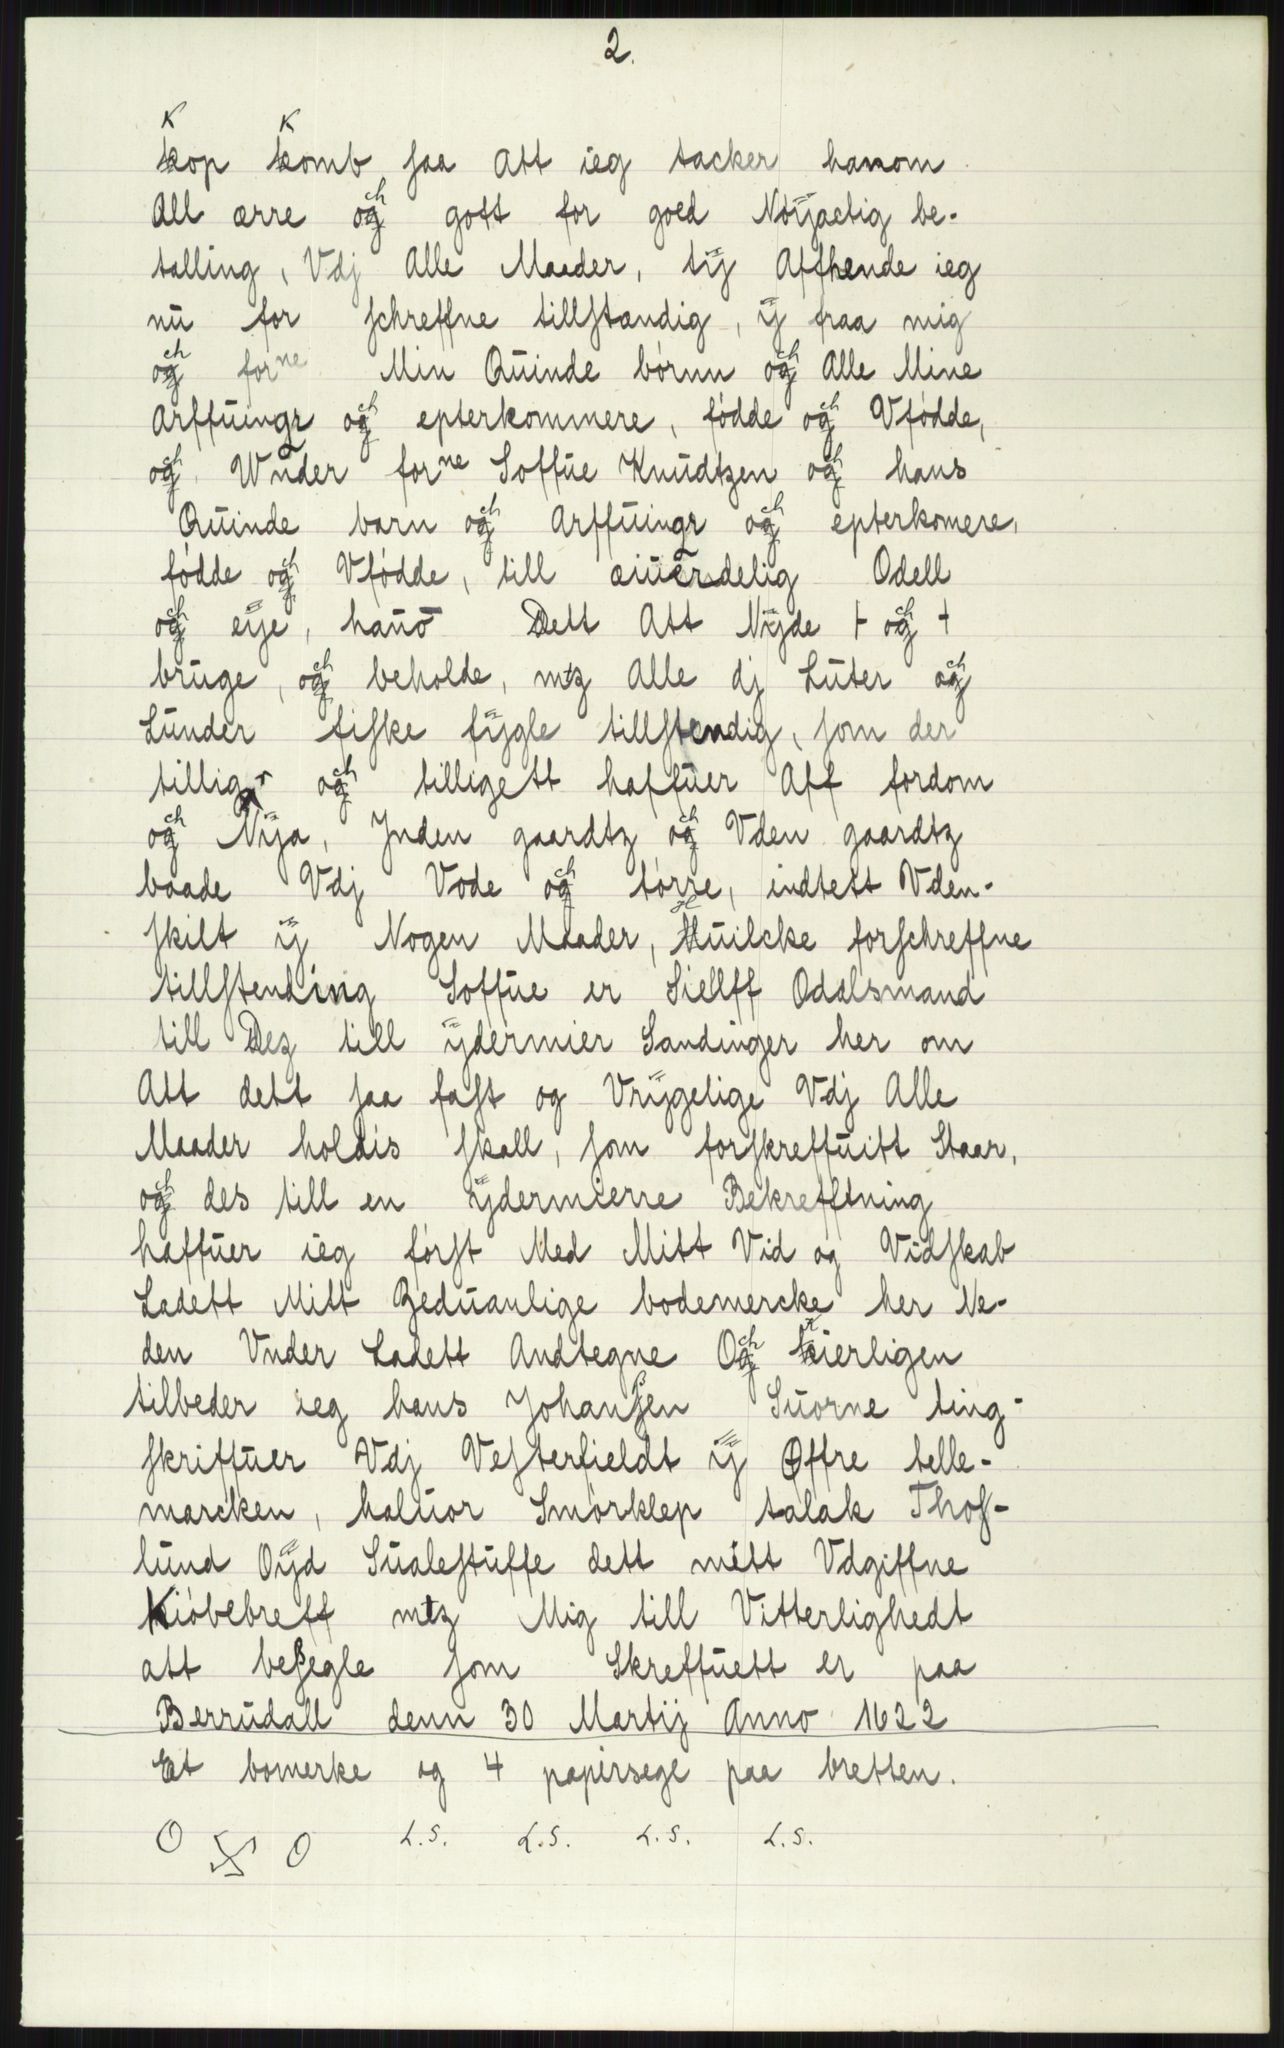 2.
Kop Komb saa Att ieg tacker hanom
All ærre och gott for goed Nöÿactig be-
talling, Vdj Alle Maader, tÿ Affhende ieg
nu for schreffne tillstændig, ÿ fraa mig
och forne Min Quinde börnn och Alle Mine
Arffuingr och epterkommere, födde och Vfödde,
och Wnder forne Soffue Knudtzen och hans
Quinde barn och Arffuingr och epterkomere,
födde och Vfödde, till æiuerdelig Odell
och eÿe, hanō Dett Att Nÿde + och +
bruge, och beholde, mtz Alle dj Luter och
Lunder fiske fÿgle tillstendig, som der
tilligr och tilligett haffuer Aff fordom
och Nÿa, Jnden gaardtz och Vden gaardtz
baade Vdj Vode och törre, indtett Vden-
skilt ÿ Nogen Maader, Huilcke forschreffne
tillstending Soffue er Siellff Odalsmand
till Dez till ÿdermier Sandinger her om
Att dett saa fast og Vrÿgelige Vdj Alle
Maader holdis skall, som forskreffuitt Staar,
och des till en ÿdermierre Bekrefftning
haffuer ieg först Med Mitt Vid og Vidskab
Ladett Mitt Zeduanlige bodemercke her Ne-
den Vnder Ladett Andtegne Och kierligen
tilbeder ieg hans Johanssen Suorne ting-
skriffuer Vdj Vesterfieldt ÿ Øffre telle-
marcken, haluor Smörklep talak Thos-
lund Oÿd Sualestuffe dett mitt Vdgiffne
Kiöbebreff mtz Mig till Vitterlighedt
att besegle som Skreffuett er paa
Berrudall denn 30 Martij Anno 1622
Et bomerke og 4 papirsegl paa bretten.
L.S. L.S. L.S. L.S.